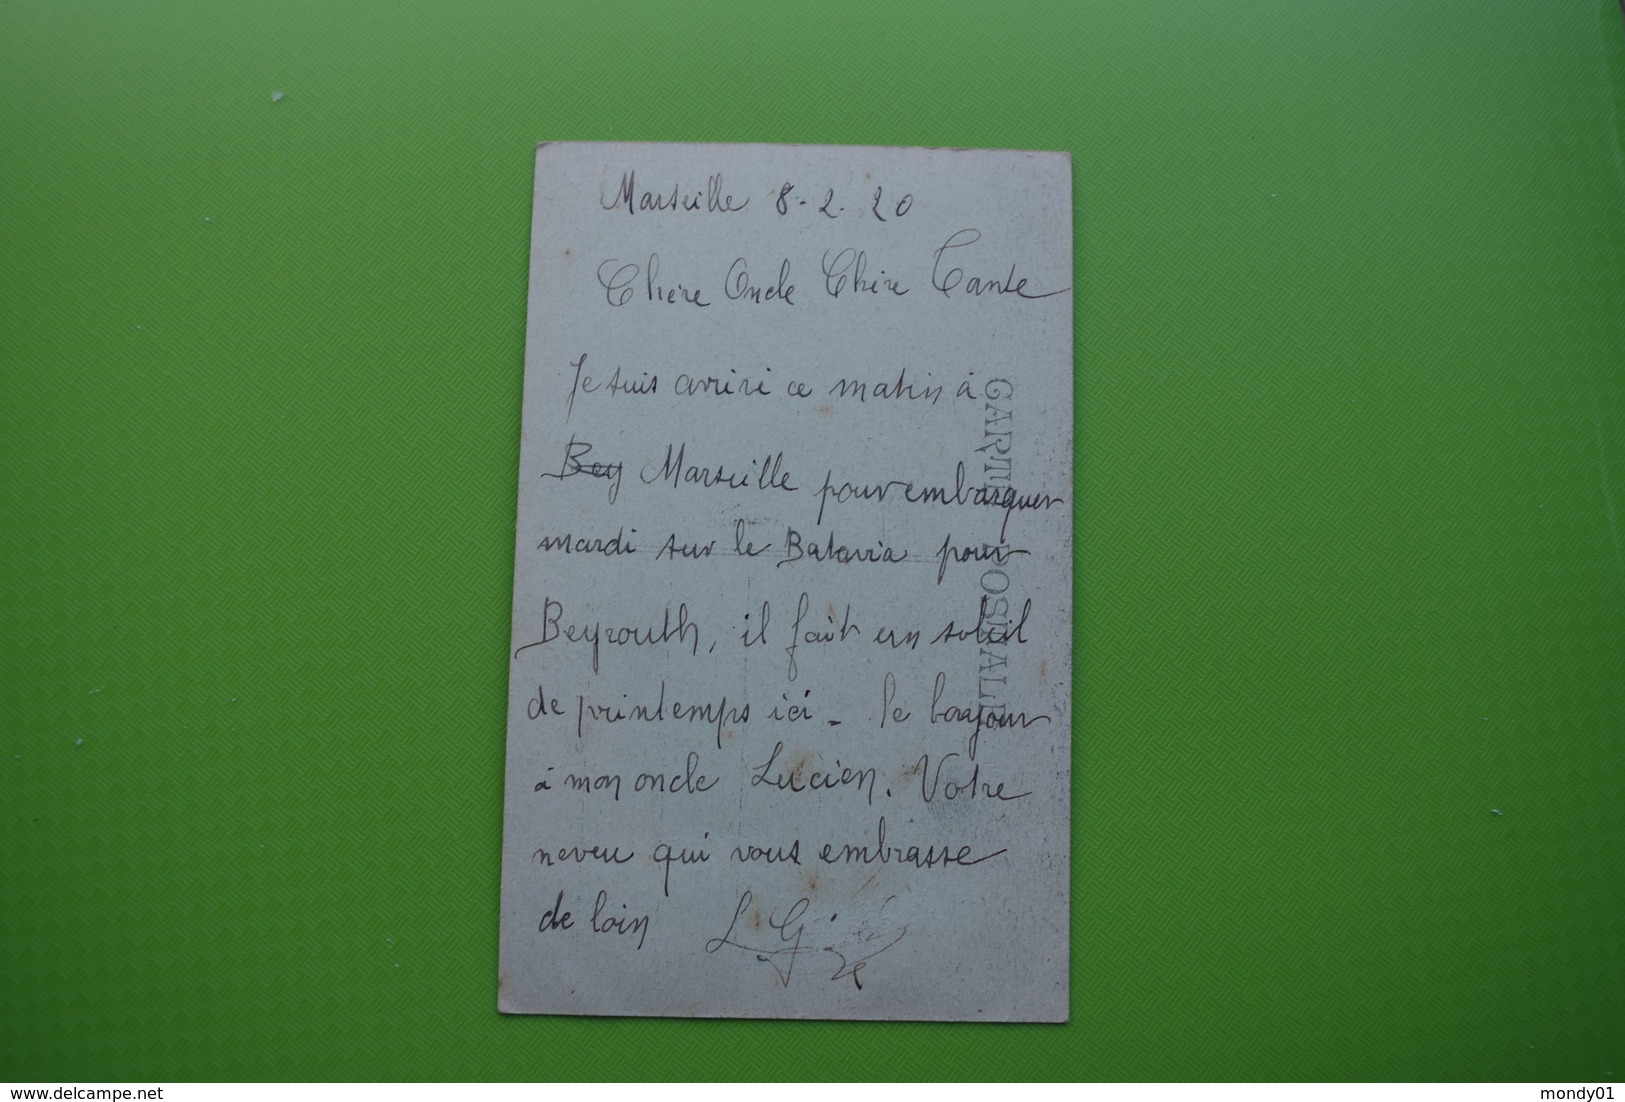 Marseille 8-2.20
Chère Oncle Chère Tante
Je suis arrivé ce matin à
Bey Marseille pour embarquer
mardi sur le Batavia pour
Beyrouth, il fait un soleil
de printemps ici - le bonjour
à mon oncle Lucien. Votre
neveu qui vous embrasse
de loin L G
CARTE POSTALE
www.delcampe.net
mondy01